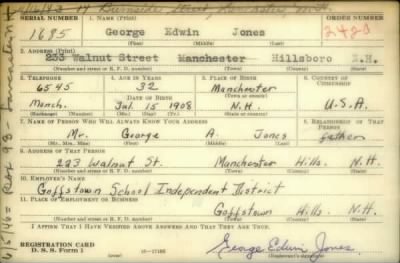 17 Burnside Street Lancaster N.H.
SERIAL NUMBER 1. NAME (Print) ORDER NUMBER
1685 George Edwin Jones 2423
(First) (Middle) (Last)
2. ADDRESS (Print)
233 Walnut Street Manchester Hillsboro N.H.
(Number and street or R. F. D. number) (Town) (County) (State)
3. TELEPHONE 4. AGE IN YEARS 5. PLACE OF BIRTH 6. COUNTRY OF CITIZENSHIP
6545 32 Manchester
DATE OF BIRTH (Town or county)
Manch. Jul. 15 1908 N.H. U.S.A.
(Exchange) (Number) (Mo.) (Day) (Yr.) (State or country)
7. NAME OF PERSON WHO WILL ALWAYS KNOW YOUR ADDRESS 8. RELATIONSHIP OF THAT PERSON
Mr. George A. Jones father
(Mr., Mrs., Miss) (First) (Middle) (Last)
9. ADDRESS OF THAT PERSON
223 Walnut St. Manchester Hills. N.H.
(Number and street or R. F. D. number) (Town) (County) (State)
10. EMPLOYER'S NAME
Goffstown School Independent District
11. PLACE OF EMPLOYMENT OR BUSINESS
Goffstown Hills. N.H.
(Number and street or R. F. D. number) (Town) (County) (State)
I AFFIRM THAT I HAVE VERIFIED ABOVE ANSWERS AND THAT THEY ARE TRUE.
REGISTRATION CARD
D. S. S. Form 1 16-17105 George Edwin Jones
(Registrant's signature)